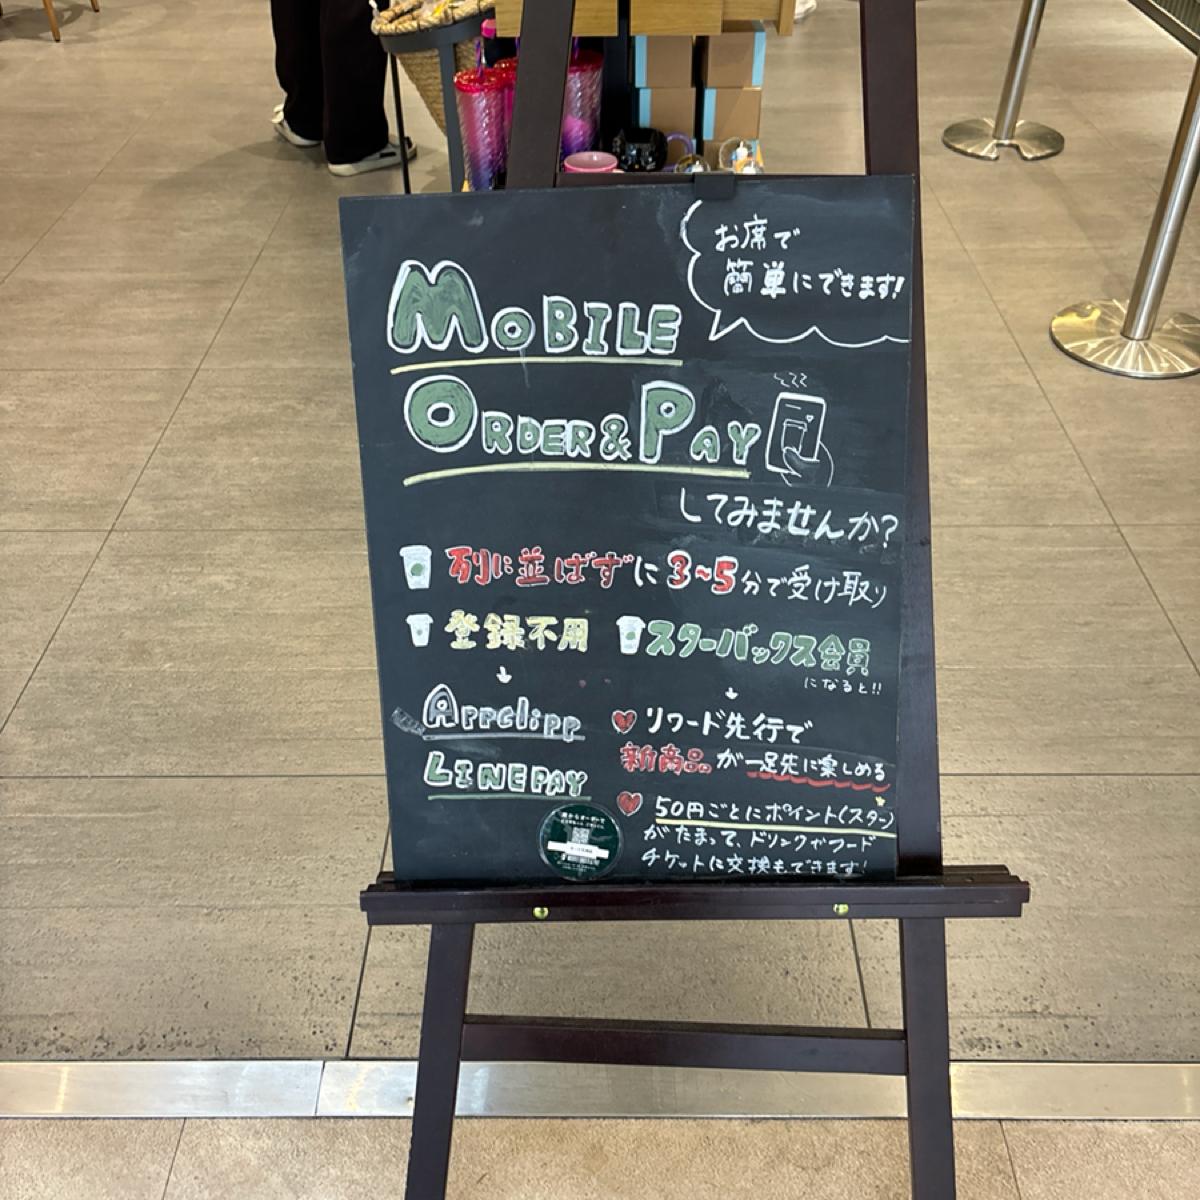 お席で
簡単にできます!
MOBILE
ORDER&PAY
してみませんか?
列に並ばずに3~5分で受け取り
登録不用
Appclipp
LINEPAY
スターバックス会員
になると!!
リワード先行で
新商品が一足先に楽しめる
50円ごとにポイント(スター)
がたまって、ドリンクやフード
チケットに交換もできます!